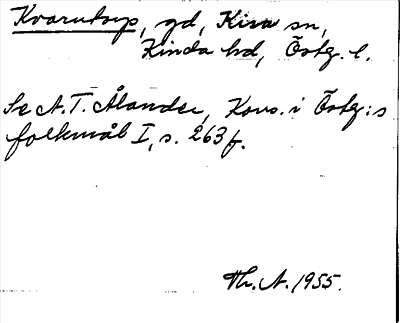 Kvarntorp, gd, Kisa sn,
Kinda hd, Östg. l.
Se A. T. Ålander, Kons. i Östg:s
folkmål I, s. 263 f.
Th. A. 1955.